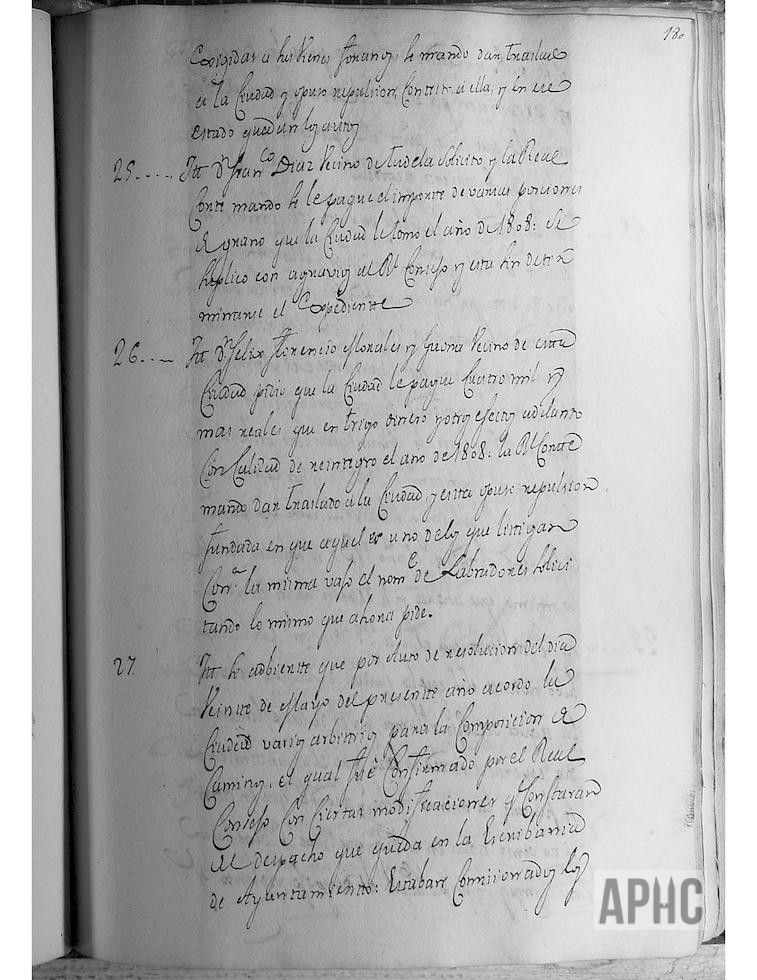 180
Corregidor a sus Rems foranos, se mando dar traslado
a la Ciudad y opuso repulsion, Conteste a ella, y en ese
estado quedan los autos
25..... Itt Dn Franco Diaz Vecino de tudela Solicito y la Real
Corte mando se le pague el importe de varias porciones
de grano que la Ciudad le tomo el año de 1808: se
suplico con agravios al Rl Consejo y esta sin deter
minarse el Expediente
26.... Itt Dn Felix florencio Morales y Vecino de esta
Ciudad pidio que la Ciudad le pague Cuatro mil y
mas reales que en trigo dinero y otros efectos adelanto
Con Calidad de reintegro el año de 1808: la Rl Corte
mando dar traslado a la Ciudad, y esta opuso repulsion
fundada en que aquel es uno de los que litigan
Conª la misma vajo el nome de Labradores solici
tando lo mismo que ahora pide.
27 Itt se adbierte que por Auto de resolucion del dia
Veinte de Mayo del presente año acordo la
Ciudad varios arbitrios para la Composicion de
Caminos, el qual fué Confirmado por el Real
Consejo Con Ciertas modificaciones y Constaran
del despacho que queda en la Escribania
de Ayuntamiento: Estaban Comisionados los
APHC